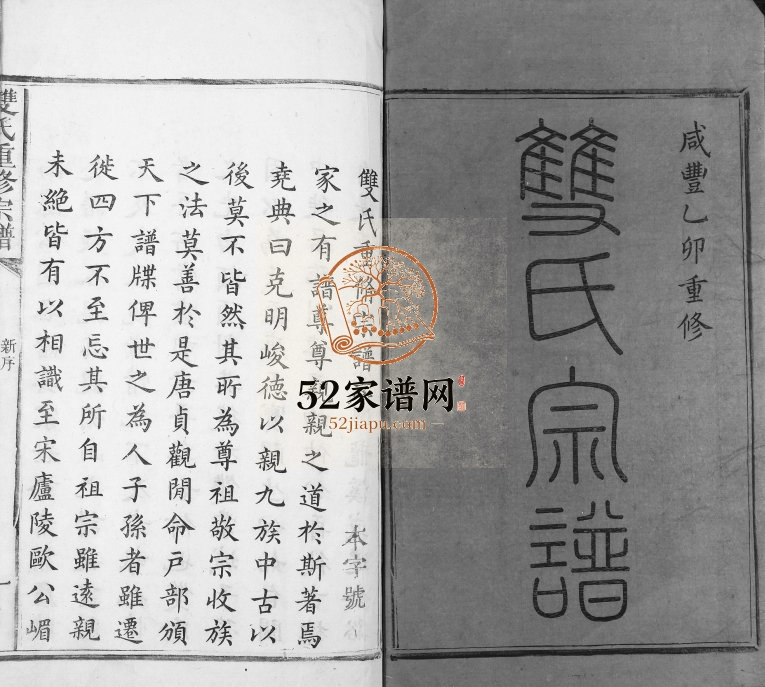 咸豐乙卯重修
雙氏宗譜
雙氏重脩宗譜
本字號
家之有譜尊尊親親之道於斯著焉
堯典曰克明峻德以親九族中古以
後莫不皆然其所為尊祖敬宗收族
之法莫善於是唐貞觀間命戶部頒
天下譜牒俾世之為人子孫者雖遷
徙四方不至忘其所自祖宗雖遠親
未絕皆有以相識至宋廬陵歐公嵋
雙氏重修宗譜
新序
一
52家谱网
52jiapu.com